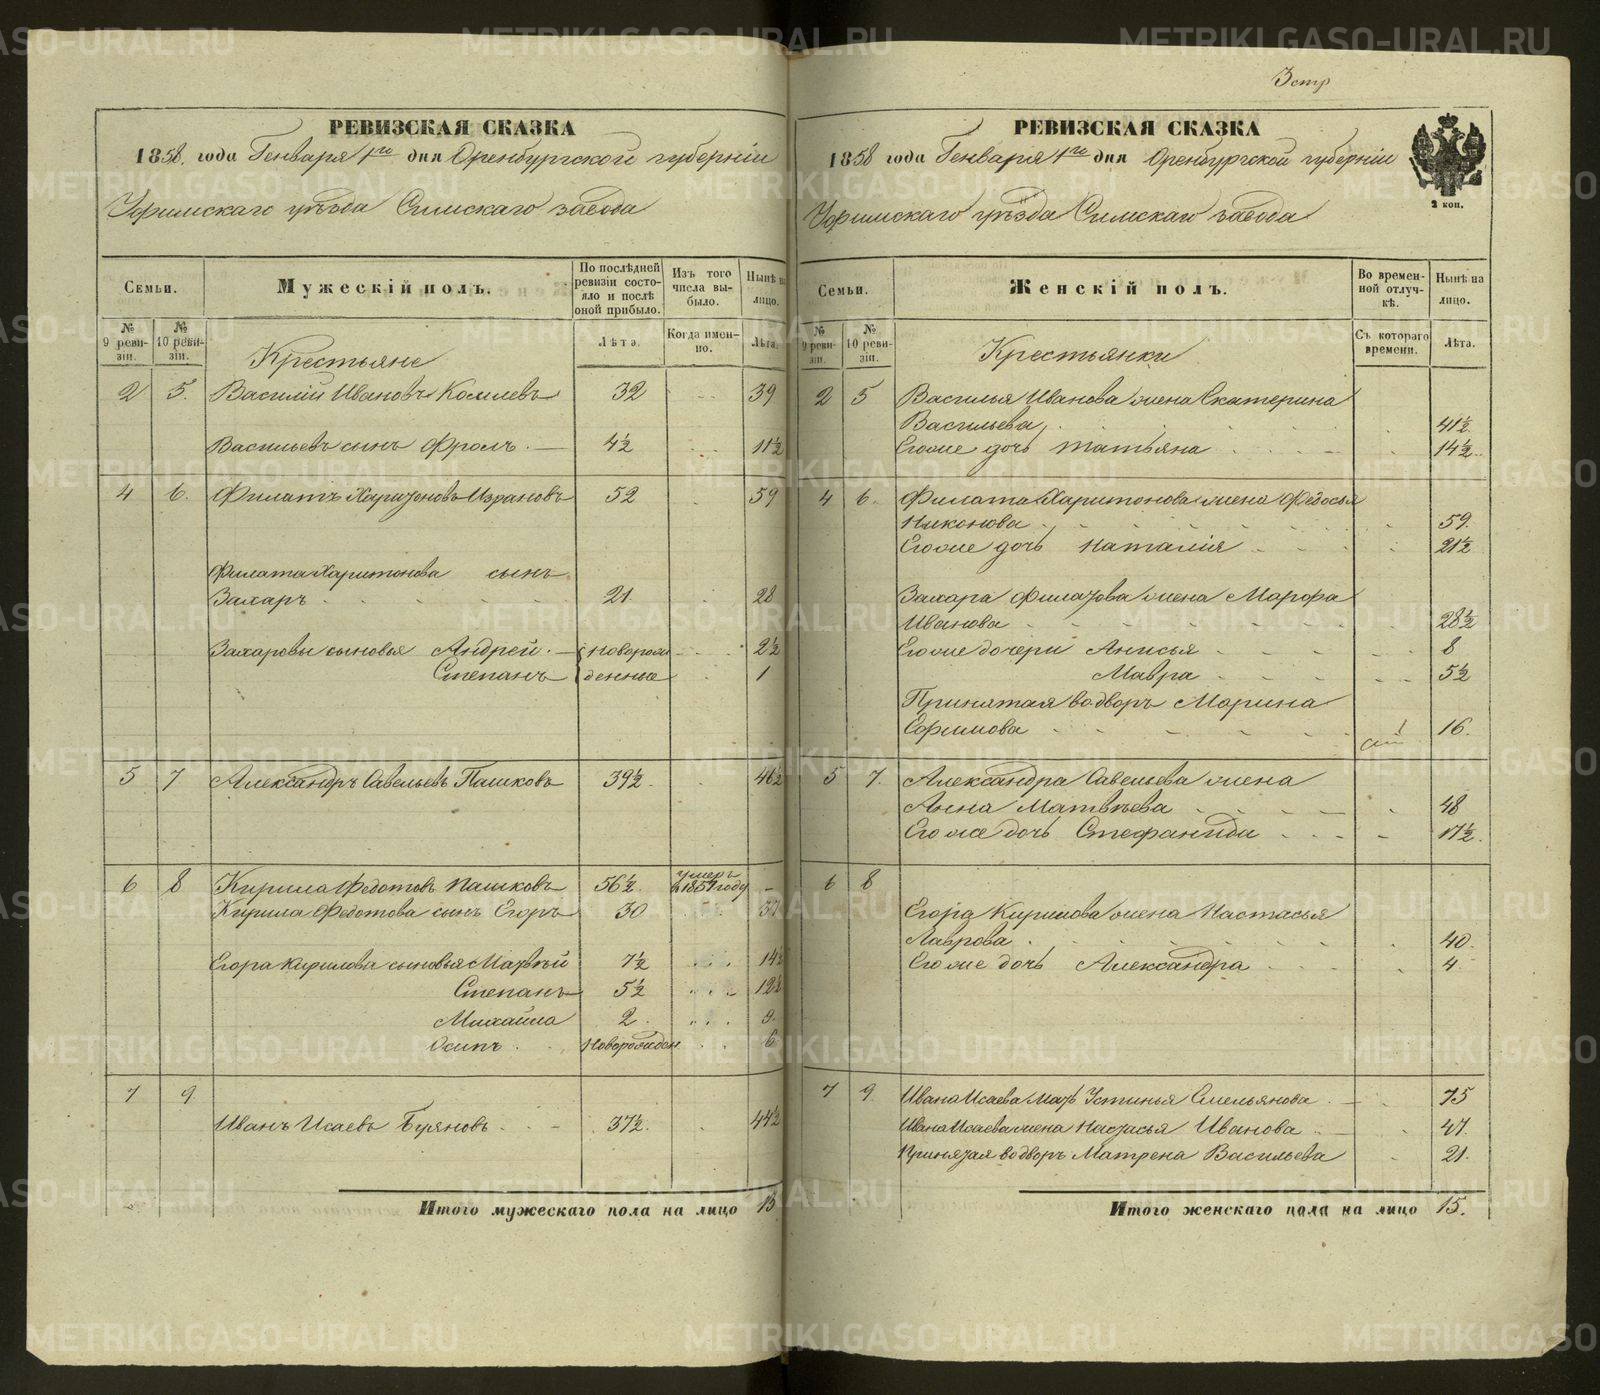 3 стр
РЕВИЗСКАЯ СКАЗКА
1858. года Генваря 1го дня Оренбургской губерніи
Уфимскаго уѣзда Симскаго завода
Семьи.
Мужескій полъ.
По послѣдней ревизіи состояло и послѣ оной прибыло.
Изъ того числа выбыло.
Нынѣ на лицо.
№ 9 ревизіи.
№ 10 ревизіи.
Лѣта.
Когда именно.
Лѣта.
Крестьяне
2 5. Василій Ивановъ 32 39
Васильевъ сынъ Фролъ. 4½ 11½
4 6. Филатъ Харитоновъ 52 59
Филата Харитонова сынъ
Захаръ 21. 28
Захаровы сыновья Андрей. новорож- 2½
Степанъ денные 1
5 7 Александръ Савельевъ Пашковъ 39½. 46½
6 8 Кирила Федотовъ Пашковъ 56½. умеръ в 1857 году -
Кирила Федотова сынъ Егоръ 30 37
Егора Кирилова сыновья Матвѣй 7½ 14½
Степанъ 5½ 12½
Михайла 2. 9.
Осипъ новорожден 6
7 9
Иванъ Исаевъ Буяновъ 37½. 44½
Итого мужескаго пола на лицо 13
РЕВИЗСКАЯ СКАЗКА
1858 года Генваря 1го дня Оренбургской губерніи
Уфимскаго уѣзда Симскаго завода
2 коп.
Семьи.
Женскій полъ.
Во временной отлучкѣ.
Нынѣ на лицо.
№ 9 ревизіи.
№ 10 ревизіи.
Съ котораго времени.
Лѣта.
Крестьянки
2 5 Василья Иванова жена Екатерина
Васильева 41½
Его же дочь Татьяна 14½
4 6. Филата Харитонова жена Федосья
Никонова 59.
Его же дочь Наталія 21½
Захара Филатова жена Марфа
Иванова 28½
Его же дочери Анисья 8
Мавра 5½
Принятая во дворъ Марина
Ефимова 16.
5 7. Александра Савельева жена
Анна Матвѣева 48
Его же дочь Стефанида 17½.
6 8
Егора Кирилова жена Настасья
Лаврова 40.
Его же дочь Александра 4.
7 9 Ивана Исаева мать Устинья Емельянова 75
Ивана Исаева жена Настасья Иванова 47.
Принятая во дворъ Матрена Васильева 21.
Итого женскаго пола на лицо 15.
METRIKI.GASO-URAL.RU